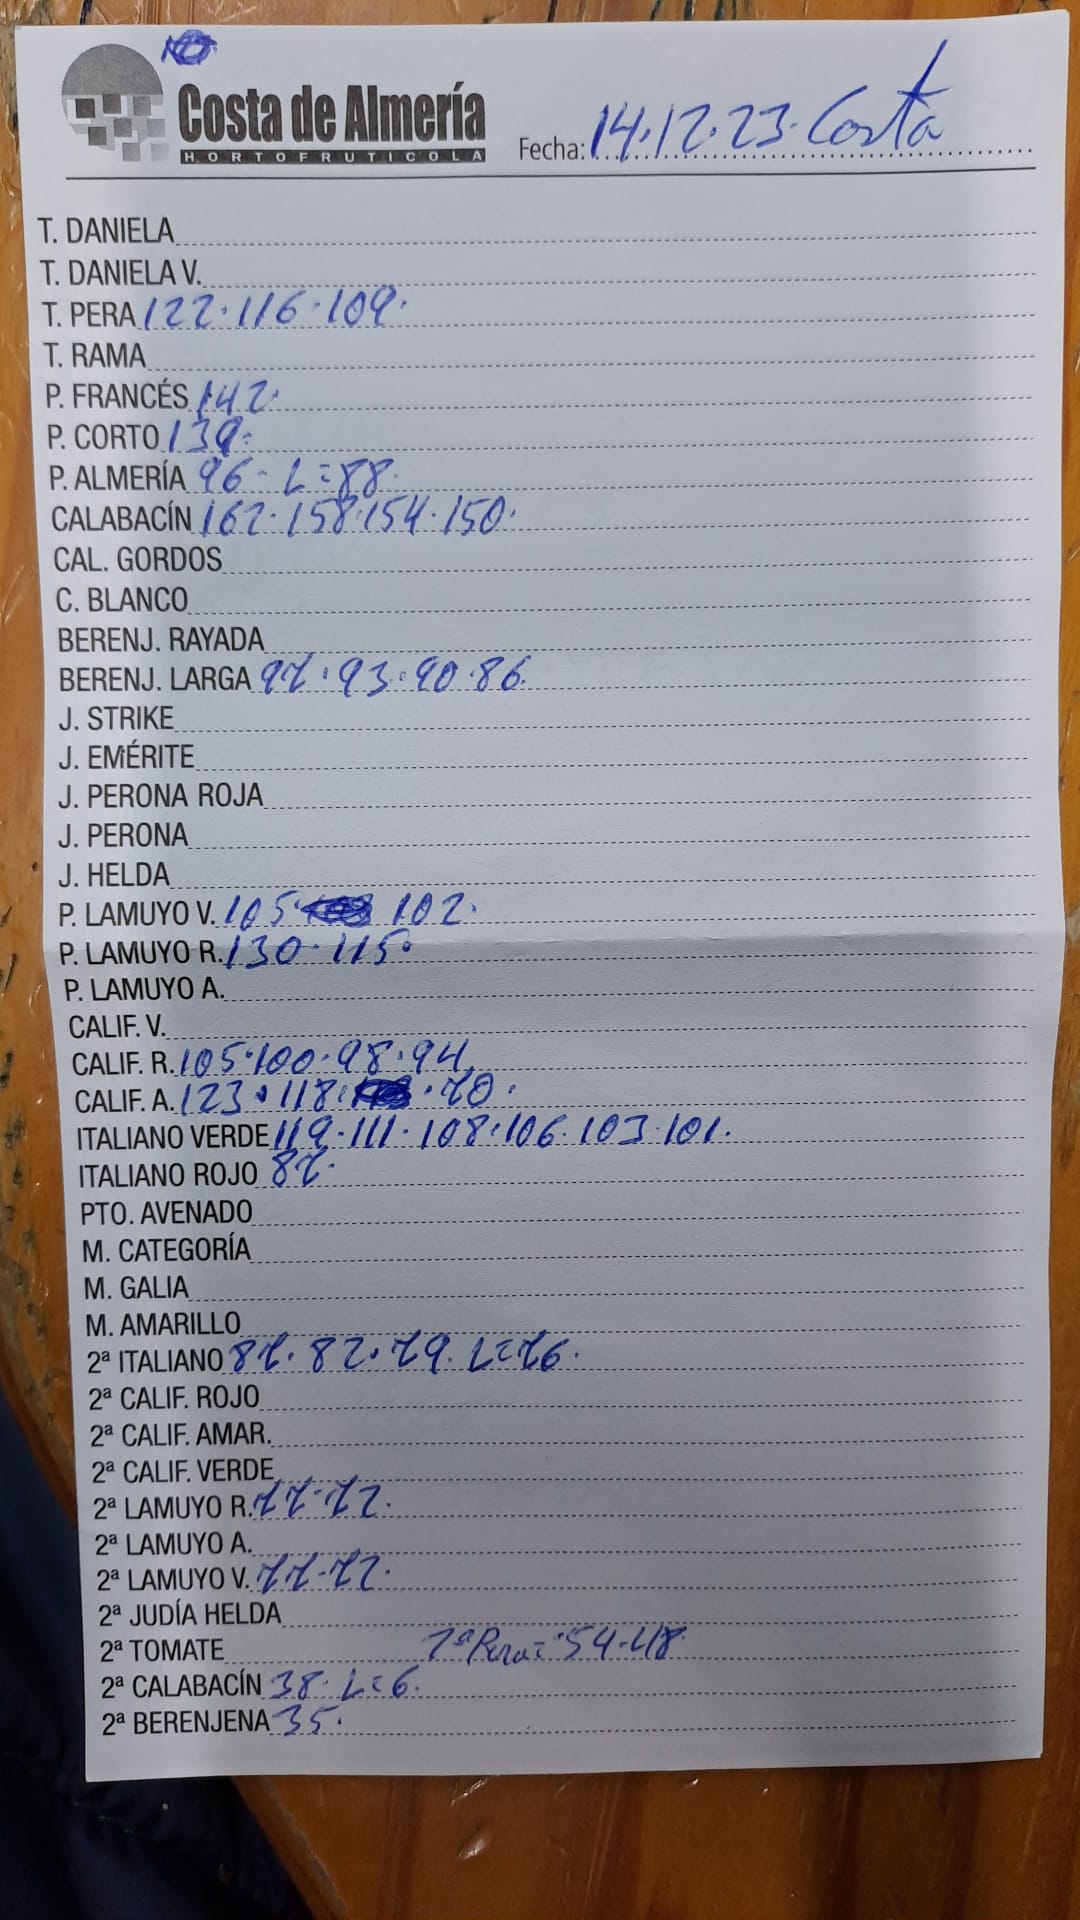 Costa de Almería
HORTOFRUTICOLA
Fecha: 14.12.23. Costa
T. DANIELA
T. DANIELA V.
T. PERA 122.116.109.
T. RAMA
P. FRANCÉS 142.
P. CORTO 139.
P. ALMERÍA 96 - L=88.
CALABACÍN 162.158.154.150.
CAL. GORDOS
C. BLANCO
BERENJ. RAYADA
BERENJ. LARGA 97.93.90.86.
J. STRIKE
J. EMÉRITE
J. PERONA ROJA
J. PERONA
J. HELDA
P. LAMUYO V. 105. 102.
P. LAMUYO R. 130.115.
P. LAMUYO A.
CALIF. V.
CALIF. R. 105.100.98.94
CALIF. A. 123.118. .70.
ITALIANO VERDE 119.111.108.106.103.101.
ITALIANO ROJO 87.
PTO. AVENADO
M. CATEGORÍA
M. GALIA
M. AMARILLO
2ª ITALIANO 87.82.79. L=76.
2ª CALIF. ROJO
2ª CALIF. AMAR.
2ª CALIF. VERDE
2ª LAMUYO R. 77.72.
2ª LAMUYO A.
2ª LAMUYO V. 77.72.
2ª JUDÍA HELDA
2ª TOMATE 2ª Pera= 54.48.
2ª CALABACÍN 38. L=6.
2ª BERENJENA 35.